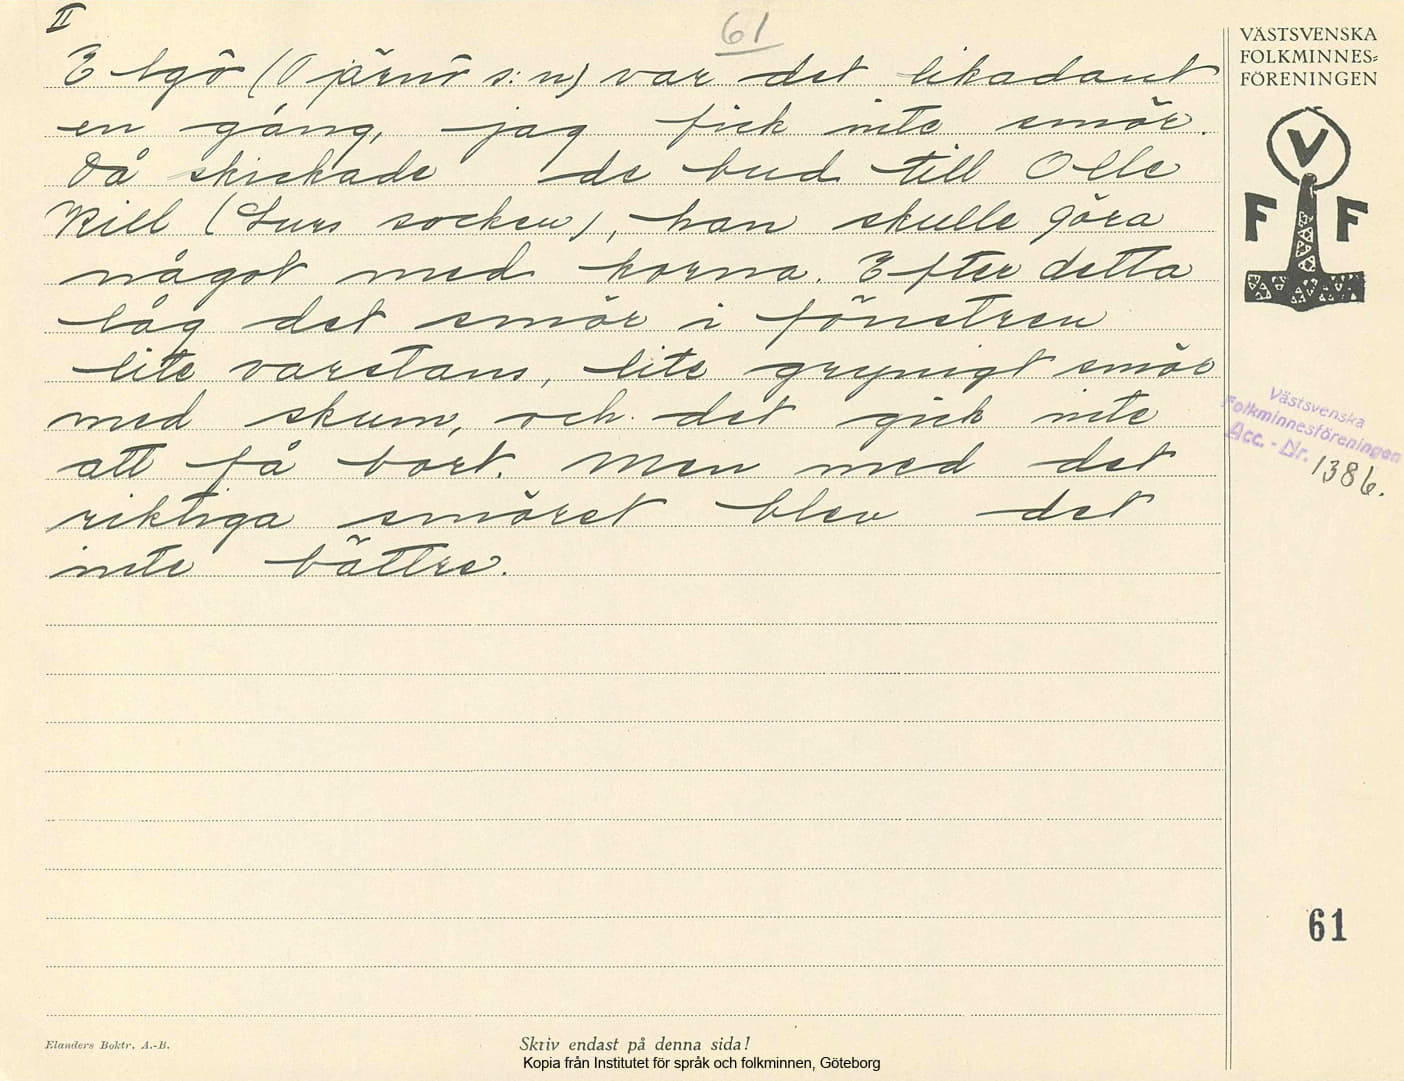 II
61
VÄSTSVENSKA
FOLKMINNES-
FÖRENINGEN
Elgö (Tjärnö s:n) var det likadant
en gång, jag fick inte smör.
Då skickade de bud till Olle
Kill (Lurs socken), han skulle göra
något med korna. Efter detta
låg det smör i fönstren
lite varstans, lite grynigt smör
med skum, och det gick inte
att få bort. Men med det
riktiga smöret blev det
inte bättre.
V
F F
Västsvenska
Folkminnesföreningen
Acc. - Nr. 1386.
61
Elanders Boktr. A.-B.
Skriv endast på denna sida!
Kopia från Institutet för språk och folkminnen, Göteborg